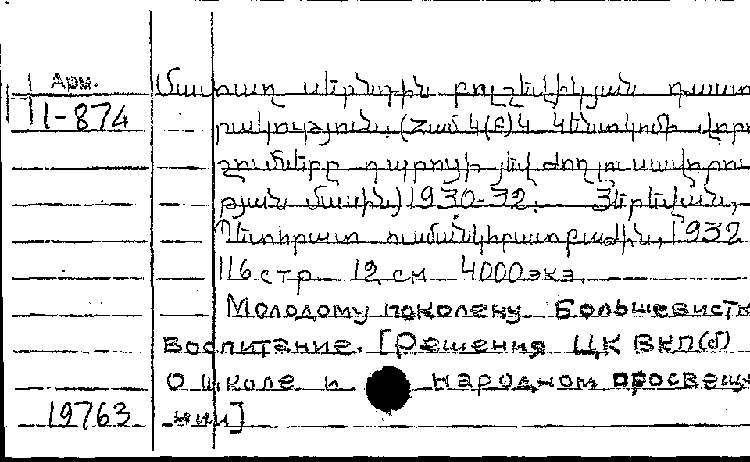 Арм.
Մատաղ սերնդին բոլշևիկյան դաստ
11-874
րակություն. (Համ Կ(բ)Կ Կենտկոմի վորո
շումները դպրոցի յեվ ժող լուսավորու
թյան մասին) 1930-32. Յերեվան,
Պետհրատ ուսմանկհրատբաժին, 1932
116 стр 12 см 4000 экз.
Молодому поколену Большевистк
воспитание. [Решения ЦК ВКП(б)
О школе и народном просвещ
19763 нии]